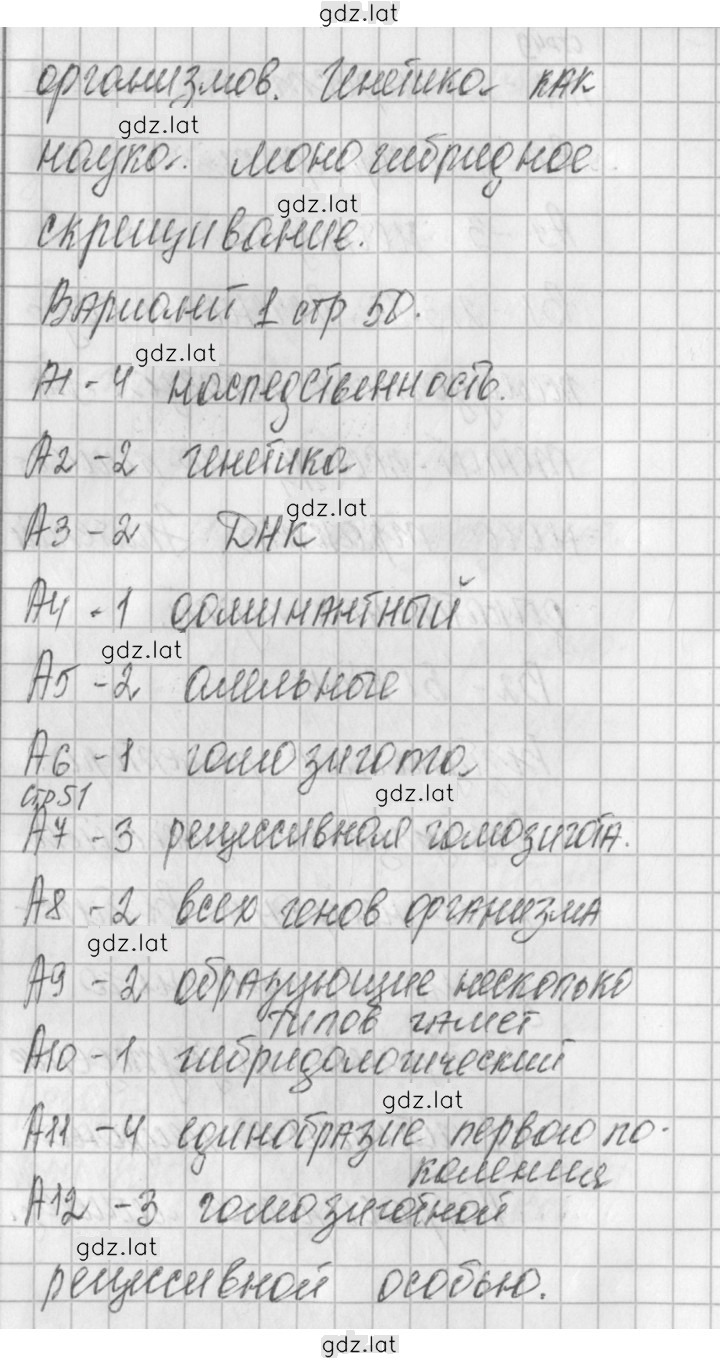 gdz.lat
организмов. Генетика как
gdz.lat
наука. моногибридное
gdz.lat
скрещивание.
Вариант 1 стр 50.
gdz.lat
А1 - 4 наследственность.
А2 - 2 генетика
gdz.lat
А3 - 2 ДНК
А4 - 1 доминантный
gdz.lat
А5 - 2 алельные
А6 - 1 гомозигота
стр 51
gdz.lat
А7 - 3 рецессивная гомозигота.
А8 - 2 всех генов организма
gdz.lat
А9 - 2 образующие несколько
типов гамет
А10 - 1 гибридологический
gdz.lat
А11 - 4 единобразие первого по-
коления
А12 - 3 гомозиготной
gdz.lat
рецессивной особью.
gdz.lat